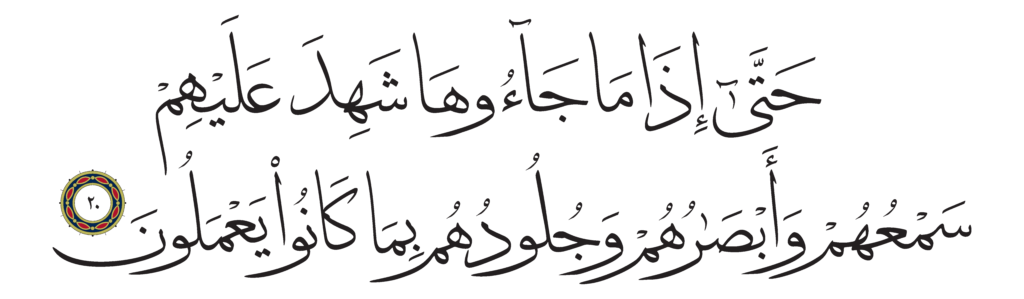 حَتَّىٰٓ إِذَا مَا جَآءُوهَا شَهِدَ عَلَيْهِمْ
سَمْعُهُمْ وَأَبْصَٰرُهُمْ وَجُلُودُهُم بِمَا كَانُوا۟ يَعْمَلُونَ ٢٠